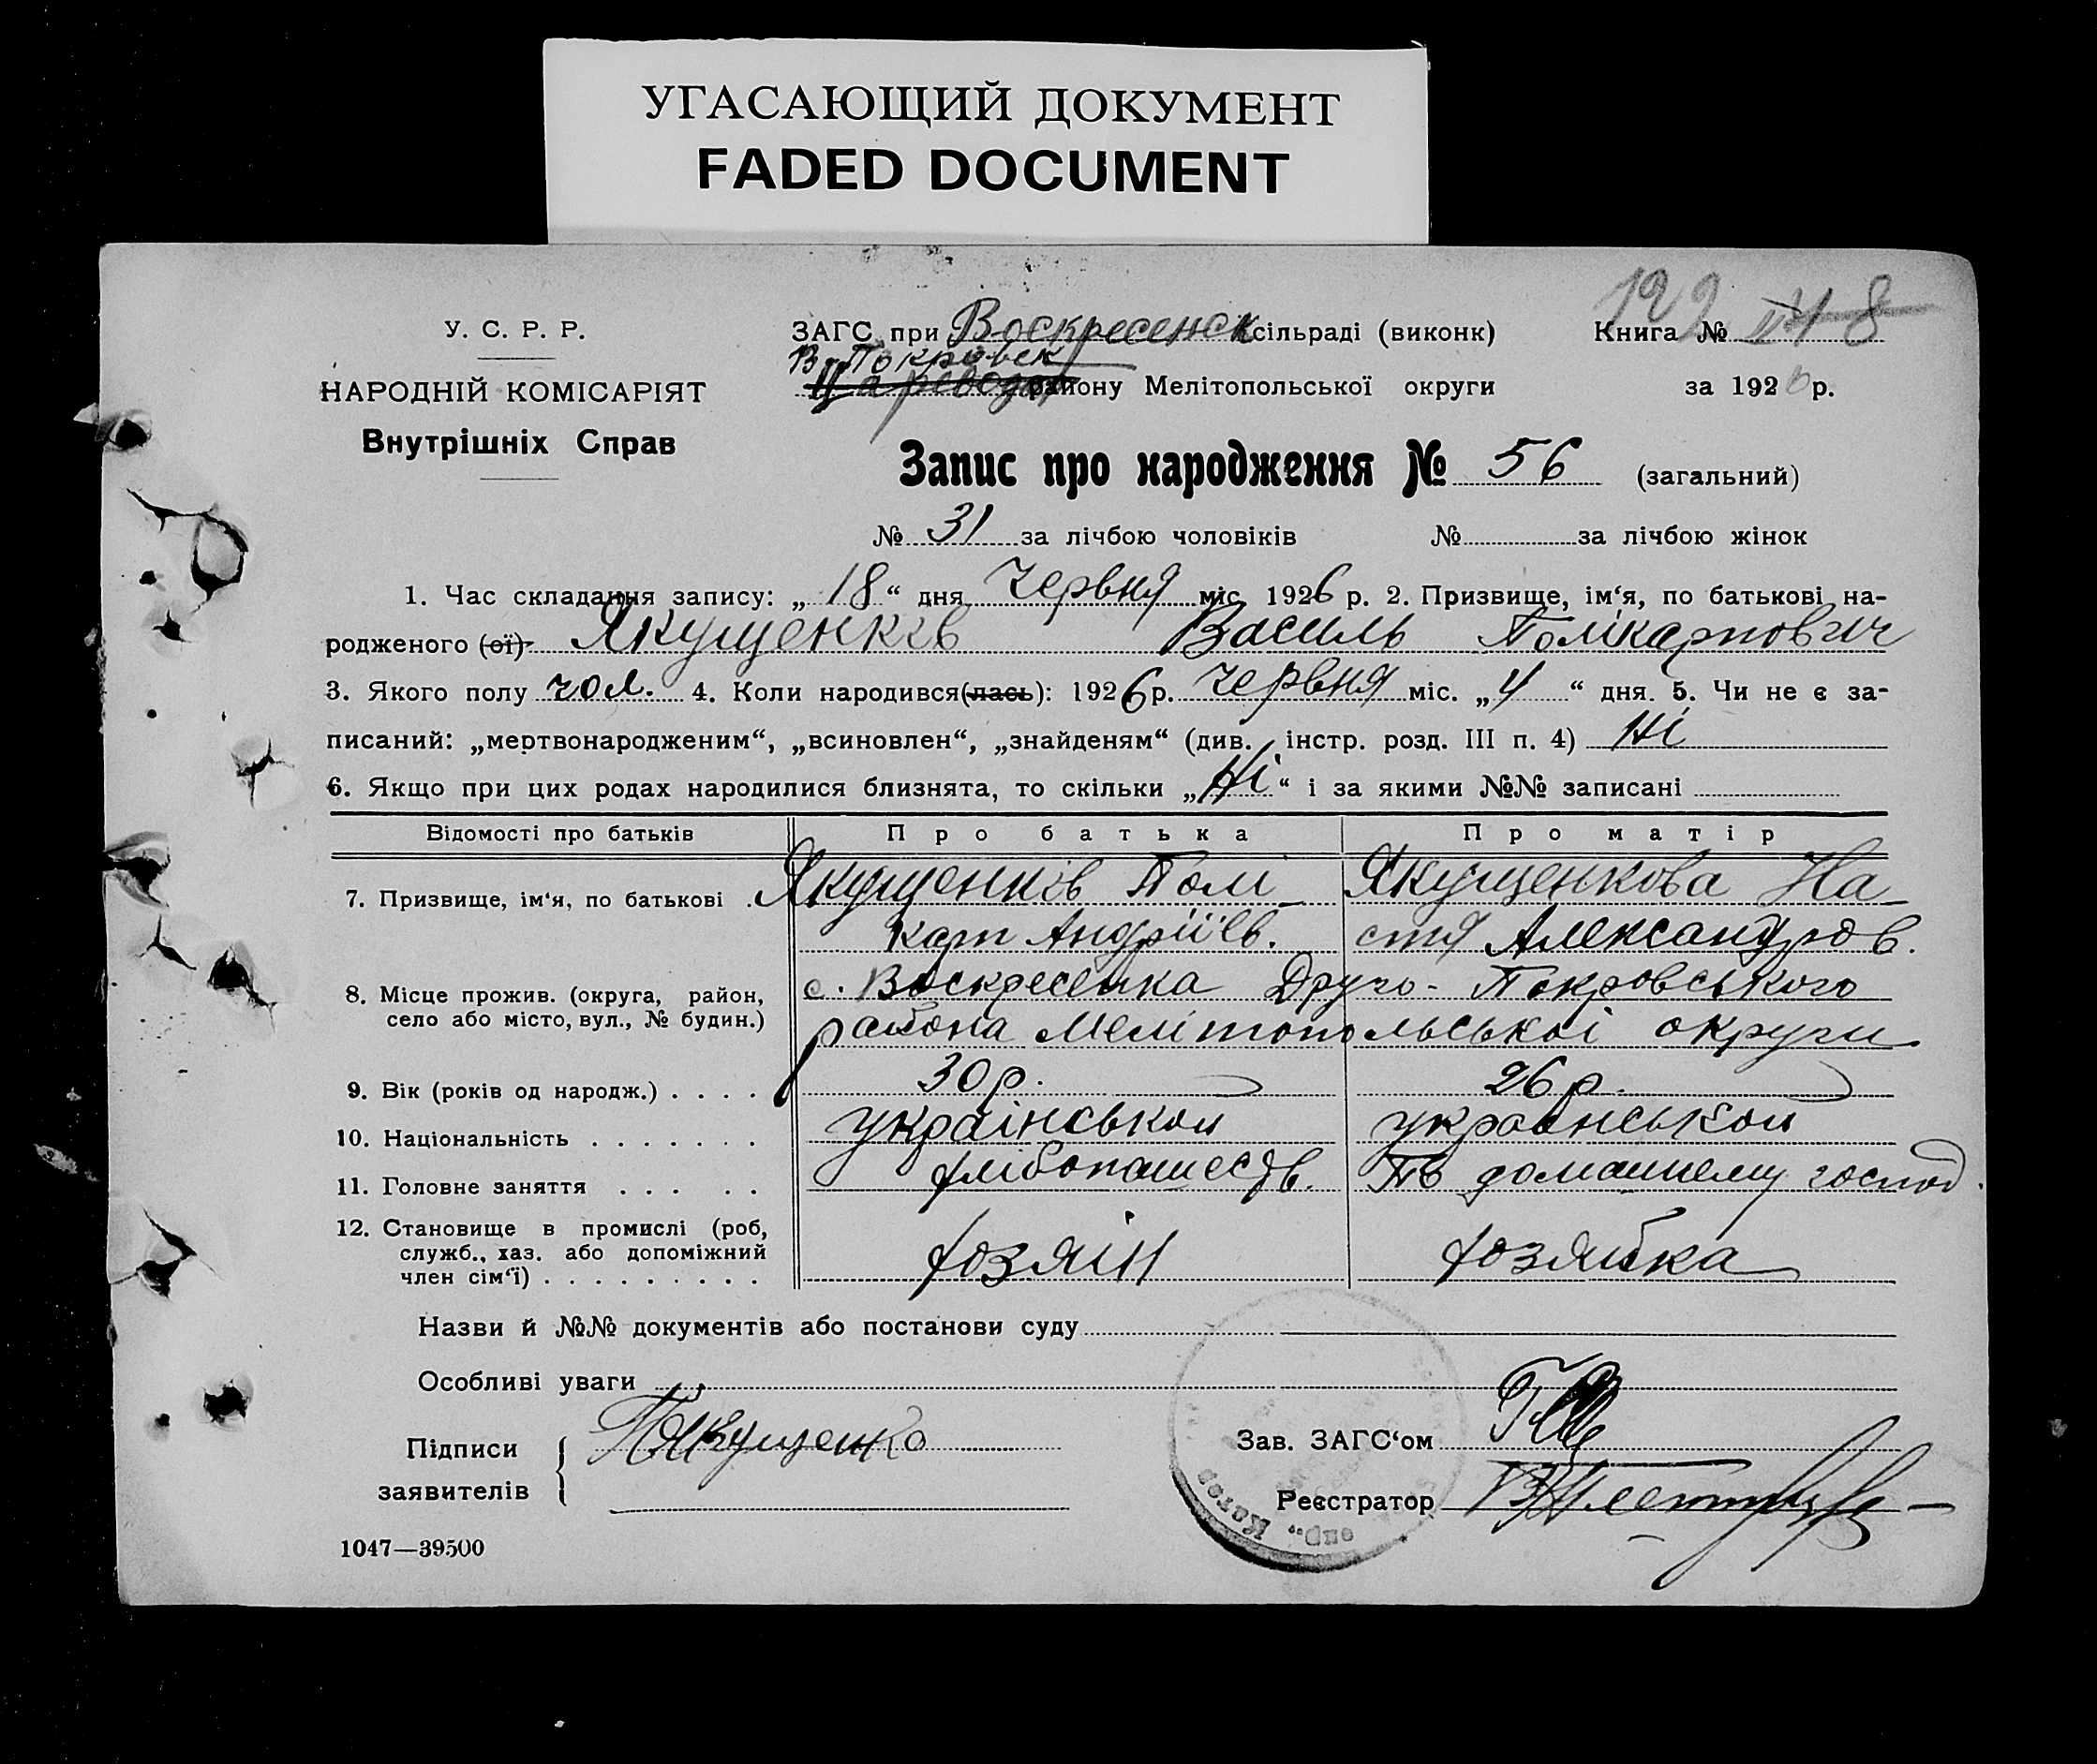 УГАСАЮЩИЙ ДОКУМЕНТ
FADED DOCUMENT
У. С. Р. Р.
НАРОДНІЙ КОМІСАРІЯТ
Внутрішніх Справ
ЗАГС при Воскресенск сільраді (виконк)
В Покровск
району Мелітопольської округи
122
Книга № 8
за 1926 р.
Запис про народження № 56 (загальний)
№ 31 за лічбою чоловіків № за лічбою жінок
1. Час складання запису: „18“ дня Червня міс 1926 р. 2. Призвище, ім‘я, по батькові на-
родженого (ої) Якущенків Василь Полікарпович
3. Якого полу чол. 4. Коли народився(лась): 1926 р. Червня міс. „4“ дня. 5. Чи не є за-
писаний: „мертвонародженим“, „всиновлен“, „знайденям“ (див. інстр. розд. III п. 4) Ні
6. Якщо при цих родах народилися близнята, то скільки „Ні“ і за якими №№ записані
Відомості про батьків Про батька Про матір
7. Призвище, ім‘я, по батькові . Якущенків Полі- Якущенкова На-
карп Андріїв. стя Александров.
8. Місце прожив. (округа, район, село або місто, вул., № будин.) с. Воскресенка Друго-Покровського
района Мелітопольськоі округи
9. Вік (років од народж.) . . . . 30 р. 26 р.
10. Національність . . . . . . . українськои украінськои
11. Головне заняття . . . . . хлібопашеств. По домашнему господ.
12. Становище в промислі (роб,
служб., хаз. або допоміжний
член сім‘ї) . . . . . . . . . хозяін хозяйка
Назви й №№ документів або постанови суду
Особливі уваги
Підписи
заявителів
Якущенко
Зав. ЗАГС‘ом
Реєстратор
1047—39500